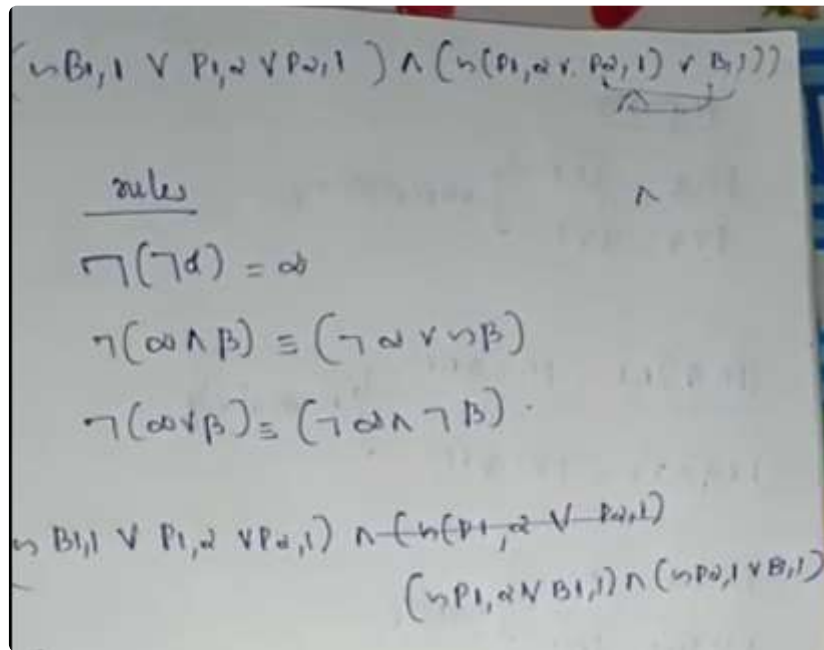 (¬B1,1 ∨ P1,2 ∨ P2,1) ∧ (¬(P1,2 ∨ P2,1) ∨ B1,1))
∧
rules
∧
¬(¬α) = α
¬(α ∧ β) ≡ (¬α ∨ ¬β)
¬(α ∨ β) ≡ (¬α ∧ ¬β).
¬B1,1 ∨ P1,2 ∨ P2,1) ∧ (¬(P1,2 ∨ P2,1)
(¬P1,2 ∨ B1,1) ∧ (¬P2,1 ∨ B1,1)